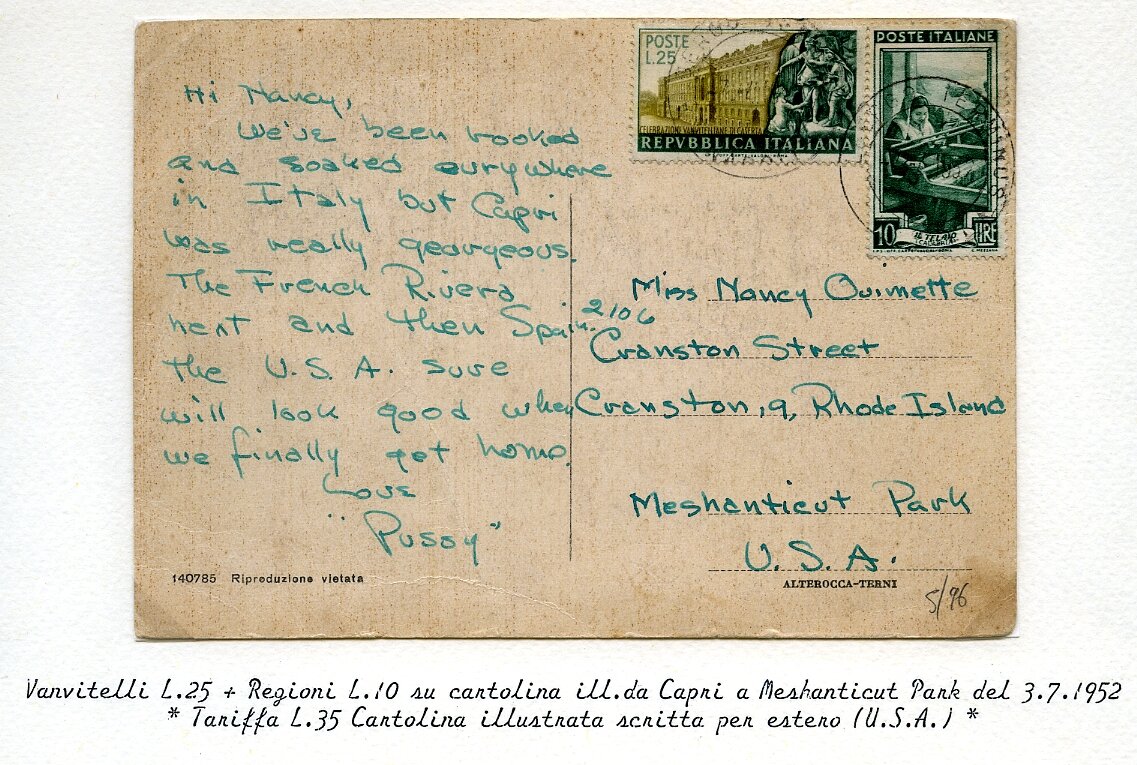 Hi Nancy,
We've been rooked
and soaked eurywhere
in Italy but Capri
was really georgeous.
The French Rivera
next and then Spain.
the U.S.A. sure
will look good when
we finally get home.
Love
"Pussy"
140785 Riproduzione vietata
POSTE
L.25
CELEBRAZIONI VANVITELLIANE DI CASERTA
REPVBBLICA ITALIANA
POSTE ITALIANE
10 IL TELAIO LIRE
Miss Nancy Ouimette
2106
Cranston Street
Cranston, 9, Rhode Island
Meshanticut Park
U.S.A.
ALTEROCCA-TERNI
5/96
Vanvitelli L.25 + Regioni L.10 su cartolina ill.da Capri a Meshanticut Park del 3.7.1952
* Tariffa L.35 Cartolina illustrata scritta per estero (U.S.A.) *